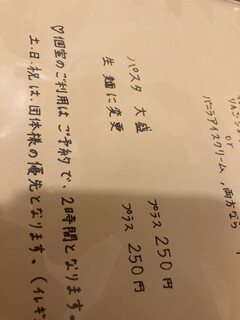 リんごジ
or
バニラアイスクリーム , 両方なら
パスタ 大盛 プラス 250円
生麺に変更 プラス 250円
♡個室のご利用はご予約で、2時間となります。
土、日、祝は、団体様の優先となります。(イレギ